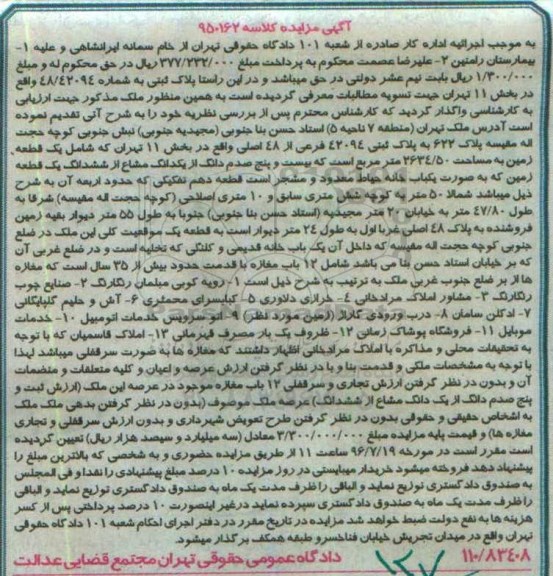 آگهی مزایده کلاسه ۹۵۰۱۶۲
به موجب اجرائیه اداره کار صادره از شعبه ۱۰۱ دادگاه حقوقی تهران از خانم سمانه ایرانشاهی و علیه ۱-
بیمارستان رامتین ۲- علیرضا عصمت محکوم به پرداخت مبلغ ۳۷۷/۲۳۲/۰۰۰ ریال در حق محکوم له و مبلغ
۱/۳۰۰/۰۰۰ ریال بابت نیم عشر دولتی در حق میباشد و در این راستا پلاک ثبتی به شماره ۴۸/۴۲۰۹۴ واقع
در بخش ۱۱ تهران جهت تسویه مطالبات معرفی گردیده است به همین منظور ملک مذکور جهت ارزیابی
به کارشناسی واگذار گردید که کارشناس محترم پس از بررسی نظریه خود را به شرح آتی تقدیم نموده
است آدرس ملک تهران (منطقه ۷ ناحیه ۵) استاد حسن بنا جنوبی (مجیدیه جنوبی) نبش جنوبی کوچه حجت
اله مقیسه پلاک ۶۲۲ به پلاک ثبتی ۴۲۰۹۴ فرعی از ۴۸ اصلی واقع در بخش ۱۱ تهران که شامل یک قطعه
زمین به مساحت ۲۶۳۴/۵۰ متر مربع است که بیست و پنج صدم دانگ از یکدانگ مشاع از ششدانگ یک قطعه
زمین که به صورت یکباب خانه حیاط معدود و مشجر است قطعه دهم تفکیکی که حدود اربعه آن به شرح
ذیل میباشد شمالا ۵۰ متر به کوچه شش متری سابق و ۱۰ متری اصلاحی (کوچه حجت اله مقیسه) شرقا به
طول ۴۷/۸۰ متر به خیابان ۲۰ متر مجیدیه (استاد حسن بنا جنوبی) جنوبا به طول ۵۵ متر دیوار بقیه زمین
فروشنده به پلاک ۴۸ اصلی غربا اول به طول ۲۴ متر دیوار است به قطعه یک موقعیت کلی این ملک در ضلع
جنوبی کوچه حجت اله مقیسه که داخل آن یک باب خانه قدیمی و کلنگی که تخلیه است و در ضلع غربی آن
که بر خیابان استاد حسن بنا می باشد شامل ۱۲ باب مغازه با قدمت حدود بیش از ۳۵ سال است که مغازه
ها از بر ضلع جنوب غربی ملک به ترتیب به شرح ذیل است ۱- رویه کوبی مبلمان رنگارنگ ۲- صنایع چوب
رنگارنگ ۳- مشاور املاک مرادخانی ۴- خرازی دلاوری ۵- کبابسرای محمدی ۶- آش و حلیم گلپایگانی
۷- ادکلن سامان ۸- درب ورودی گاراژ (زمین مورد نظر) ۹- اتو سرویس خدمات اتومبیل ۱۰- خدمات
موبایل ۱۱- فروشگاه پوشاک زمانی ۱۲- ظروف یک بار مصرف قهرمانی ۱۳- املاک قاسمیان که با توجه
به تحقیقات محلی و مذاکره با املاک مرادخانی اظهار داشتند که مغازه ها به صورت سرقفلی میباشد لهذا
با توجه به مشخصات ملکی و قدمت بنا و با در نظر گرفتن ارزش عرصه و اعیان و کلیه متعلقات و منضمات
آن و بدون در نظر گرفتن ارزش تجاری و سرقفلی ۱۲ باب مغازه موجود در عرصه این ملک (ارزش بیست و
پنج صدم دانگ از یک دانگ مشاع از ششدانگ) عرصه ملک موصوف (بدون در نظر گرفتن بدهی ملک ملک
به اشخاص حقیقی و حقوقی بدون در نظر گرفتن طرح تعویض شهرداری و بدون ارزش سرقفلی و تجاری
مغازه ها) و قیمت پایه مزایده مبلغ ۳/۳۰۰/۰۰۰/۰۰۰ معادل (سه میلیارد و سیصد هزار ریال) تعیین گردیده
است مقرر است در مورخه ۹۶/۷/۱۹ ساعت ۱۱ از طریق مزایده حضوری و به شخصی که بالاترین مبلغ را
پیشنهاد دهد فروخته میشود خریدار میبایستی در روز مزایده ۱۰ درصد مبلغ پیشنهادی را نقدا و فی المجلس
به صندوق دادگستری تودیع نماید و الباقی را ظرف مدت یک ماه به صندوق دادگستری تودیع نماید و الباقی
را ظرف مدت یک ماه به صندوق دادگستری سپرده نماید در غیر اینصورت ۱۰ درصد پرداختی پس از کسر
هزینه ها به نفع دولت ضبط خواهد شد مزایده در تاریخ مقرر در دفتر اجرای احکام شعبه ۱۰۱ دادگاه حقوقی
تهران واقع در میدان تجریش خیابان فناخسرو طبقه همکف برگذار میشود.
۱۱۰/۸۳۴۰۸ دادگاه عمومی حقوقی تهران مجتمع قضایی عدالت